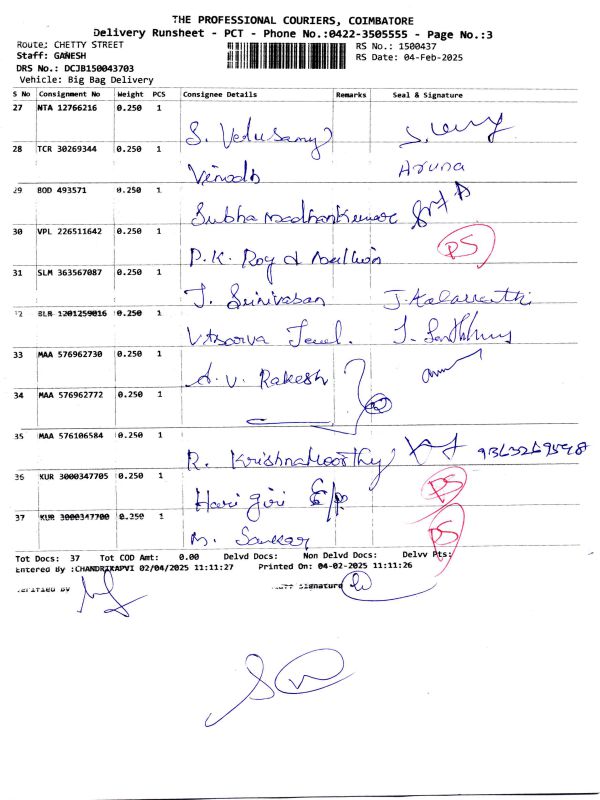 THE PROFESSIONAL COURIERS, COIMBATORE
Delivery Runsheet - PCT - Phone No.:0422-3505555 - Page No.:3
Route: CHETTY STREET
RS No.: 1500437
Staff: GANESH
RS Date: 04-Feb-2025
DRS No.: DCJB150043703
Vehicle: Big Bag Delivery
S No Consignment No Weight PCS Consignee Details Remarks Seal & Signature
27 NTA 12766216 0.250 1
S. Velusamy
28 TCR 30269344 0.250 1
Vinodh Aruna
29 BOD 493571 0.250 1
Subha Madhankumar
30 VPL 226511642 0.250 1
P.K. Roy & PS
31 SLM 363567087 0.250 1
J. Srinivasan J. Kalavathi
BLR 1201259016 0.250 1
33 MAA 576962730 0.250 1
A.V. Rakesh
34 MAA 576962772 0.250 1
35 MAA 576106584 0.250 1
R. Krishnamoorthy
36 KUR 3000347705 0.250 1
Hari giri PS
37 KUR 3000347700 0.250 1
M. Sankar PS
Tot Docs: 37 Tot COD Amt: 0.00 Delvd Docs: Non Delvd Docs: Delvv Pts:
Entered By :CHANDRIKAPVI 02/04/2025 11:11:27 Printed On: 04-02-2025 11:11:26
Signature